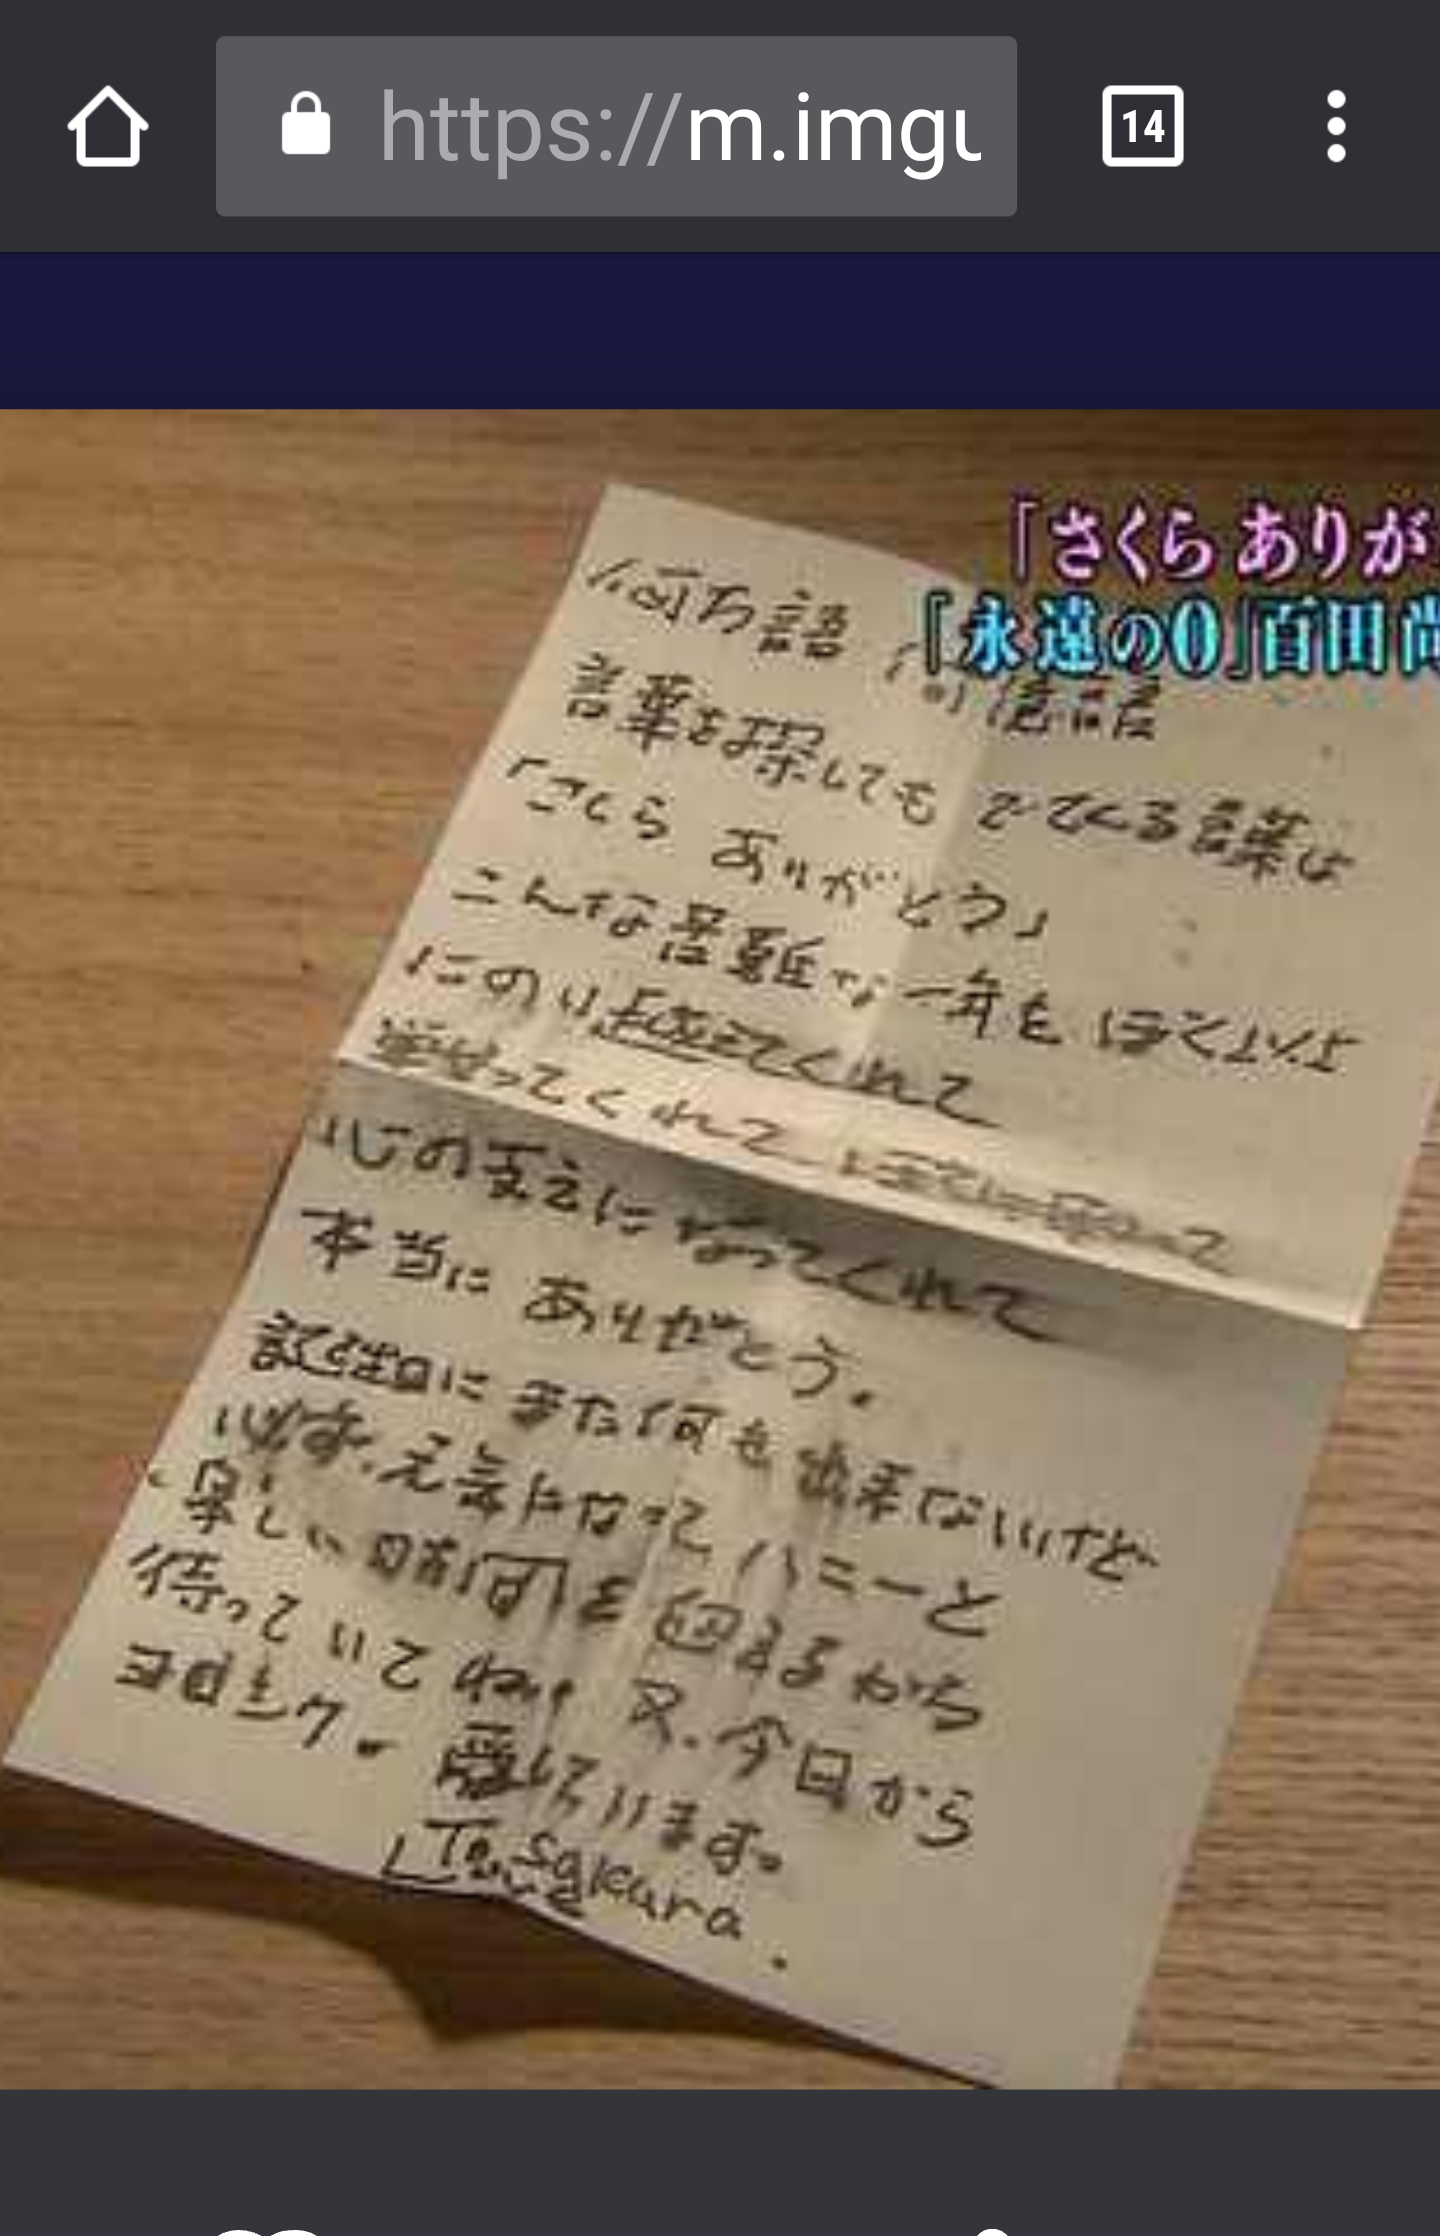 https://m.imgu
14
「さくら ありが
『永遠の0』百田尚
何万語 何億語
言葉を探しても でてくる言葉は
「さくら ありがとう」
こんな苦難な一年を ぼく以上
にのり越えてくれて
心の支えになってくれて
本当に ありがとう.
誕生日に また何も出来ないけど
必ず、元気になって ハニーと
楽しい時間を 迎えるから
待っていてねっ 又、今日から
ヨロシク。愛しています。
To, Sakura.